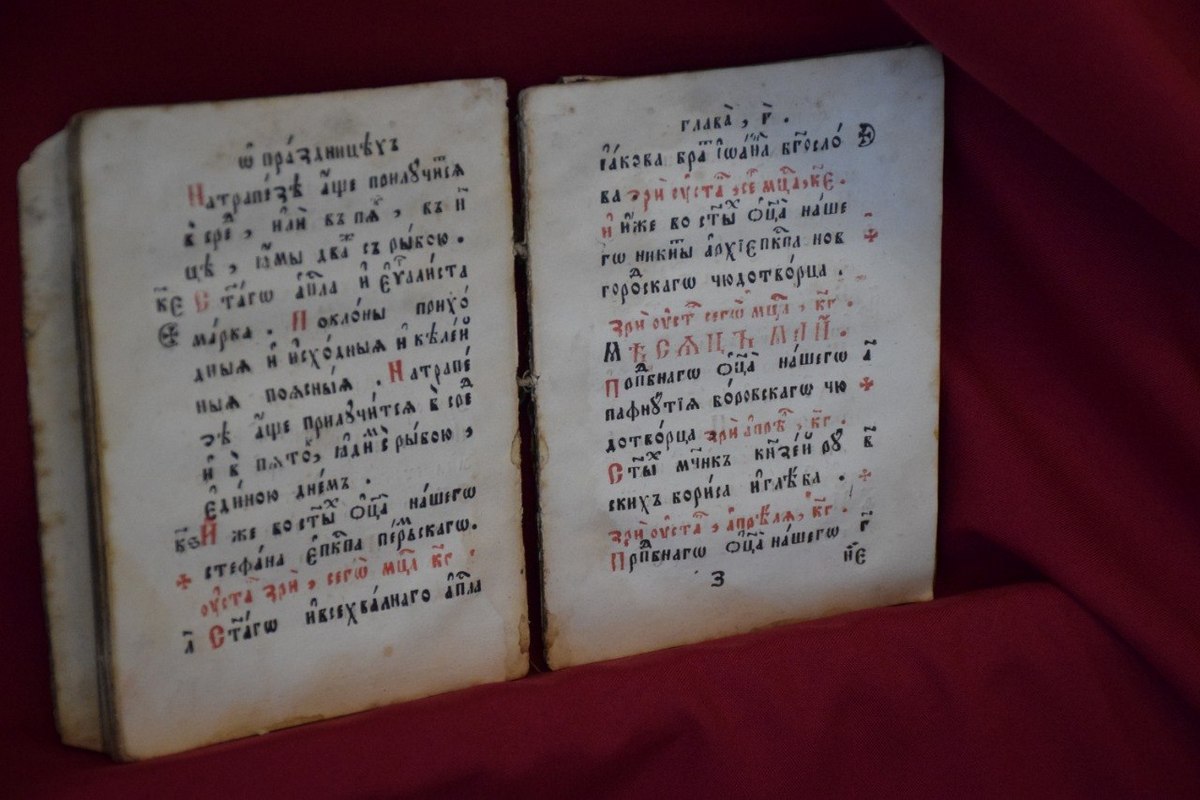 ѡ҆ пра́здницѣхъ
Натрапе́зѣ а҆́ще прилꙋчи́тсѧ
в̾ сре҆ⷣ, и҆лѝ въ пѧ҆ⷦ, въ п҃
цѣ, ꙗ҆́мы два́ⷤ съ ры́бою.
к҃є С҃та́гѡ а҆пⷭ҇ла и҆ є҆ѵⷢ҇али́ста
ма́рка. Покло́ны прихо́
дныѧ и҆ и҆схо́дныѧ и҆ кѣле́й
ныѧ поѧсны́ѧ. Натрапе́
зѣ а҆́ще прилꙋчи́тсѧ в̾ сре҆ⷣ
и҆ в̾ пѧто́ⷦ, ꙗ҆ди́ⷨ с̾ ры́бою,
є҆ди́ною дне́мъ.
к҃ѕ И҆́же во ст҃ы́ⷯ ѻ҆ц҃а̀ на́шегѡ
стефа́на є҆пⷭ҇кпа пе́рмьскагѡ.
ᲂу҆ста́ⷡ зрѝ, сегѡ̀ мцⷭ҇а к҃г.
л҃ С҃та́гѡ и҆ всехва́лнаго а҆пⷭ҇ла
глава̀, г҃.
і҆а́кова бра́ⷮ і҆ѡа́нна бг҃осло́
ва зрѝ ᲂу҆ста́ⷡ, сеⷢ҇ мцⷭ҇а, к҃є.
И҆ и҆́же во ст҃ы́ⷯ ѻ҆ц҃а̀ на́ше
гѡ ники́ты а҆рхїєпⷭ҇кпа нов
горо́ⷣскагѡ чюдотво́рца.
зрѝ ᲂу҆ста́ⷡ сегѡ̀ мцⷭ҇а, к҃г.
Мѣсѧцъ май.
Прпⷣбнагѡ ѻ҆ц҃а̀ на́шегѡ а҃
пафнꙋ́тїѧ бо́ровскагѡ чю
дотво́рца зрѝ а҆пре́ⷧ, к҃г.
Ст҃ы́ⷯ мч҃нкъ кн҃зе́й рꙋ́ в҃
скихъ бори́са и҆ глѣ́ба.
зрѝ ᲂу҆ста́ⷡ, а҆прѣ́лѧ, к҃г.
Прпⷣбнагѡ ѻ҆ц҃а̀ на́шегѡ г҃
з